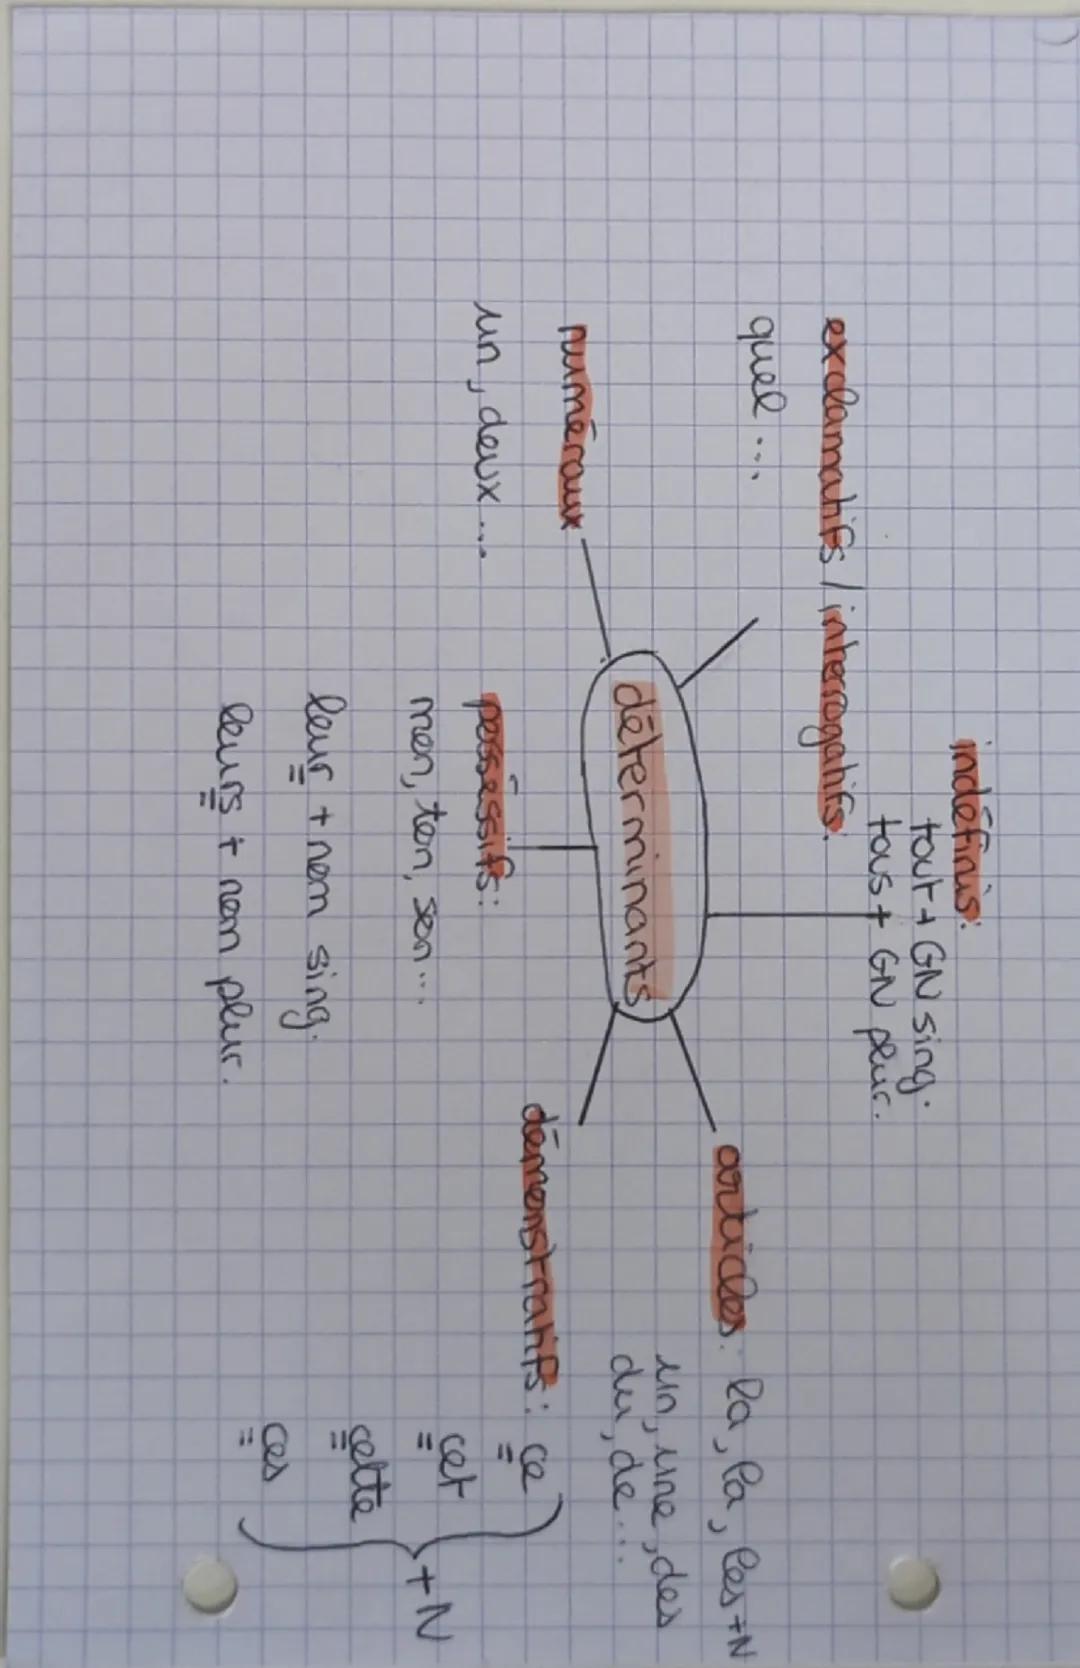 indéfinis:
tout + GN sing.
tous + GN plur.
exclamatifs / interrogatifs.
quel ...
articles: la, la, les + N
un, une, des
du, de ...
déterminants
numéraux
un, deux ...
démonstratifs: ce
cet
cette
ces
+ N
possessifs:
mon, ton, son ...
leur + nom sing.
leurs + nom plur.